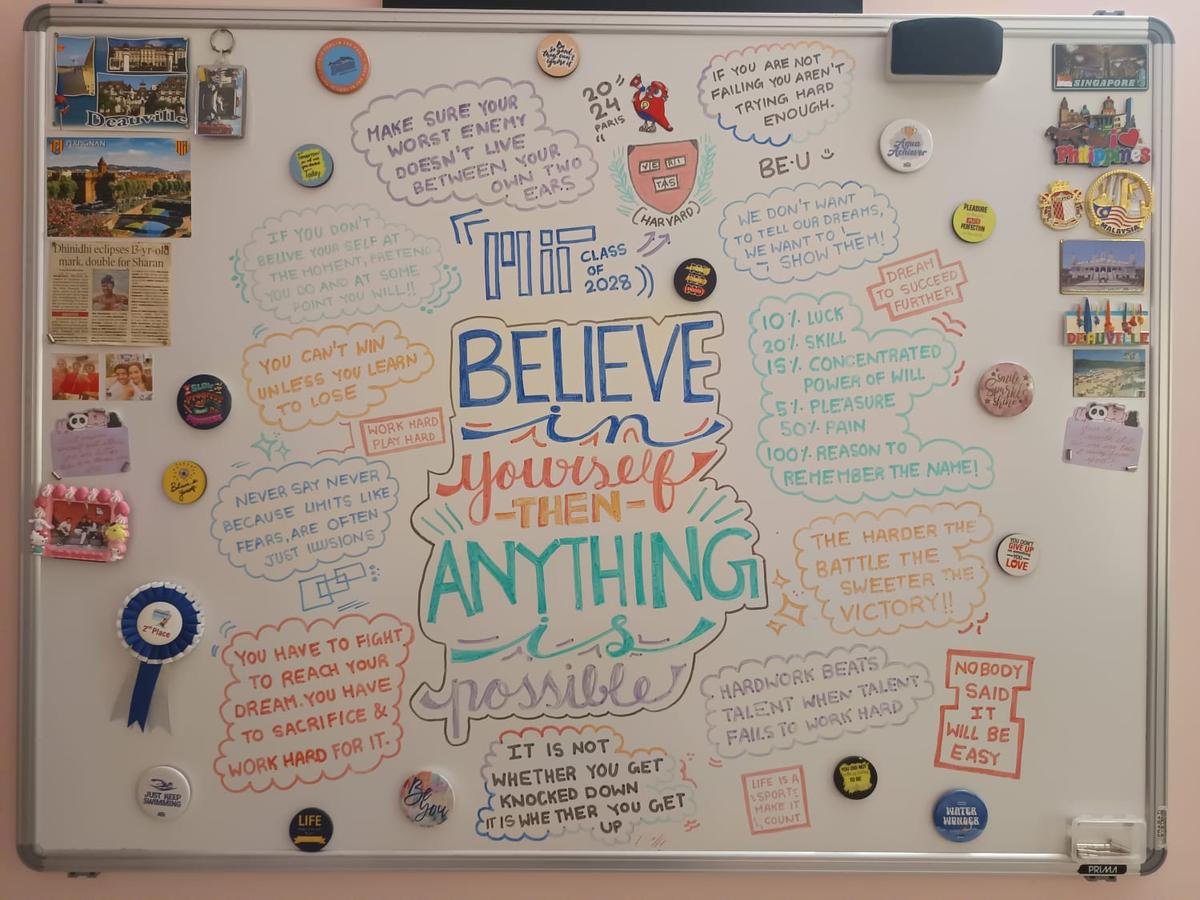 Deauville
PERPIGNAN
Dhinidhi eclipses 13-yr-old
mark, double for Sharan
MAKE SURE YOUR
WORST ENEMY
DOESN'T LIVE
BETWEEN YOUR
OWN TWO
EARS
2024
PARIS
IF YOU ARE NOT
FAILING YOU AREN'T
TRYING HARD
ENOUGH.
BE·U
VE RI
TAS
(HARVARD)
IF YOU DON'T
BELIVE YOUR SELF AT
THE MOMENT, PRETEND
YOU DO AND AT SOME
POINT YOU WILL!!
MIT
CLASS
OF
2028
WE DON'T WANT
TO TELL OUR DREAMS,
WE WANT TO
SHOW THEM!
DREAM
TO SUCCEED
FURTHER
YOU CAN'T WIN
UNLESS YOU LEARN
TO LOSE
WORK HARD
PLAY HARD
BELIEVE
in
yourself
-THEN-
ANYTHING
is
possible
10% LUCK
20% SKILL
15% CONCENTRATED
POWER OF WILL
5% PLEASURE
50% PAIN
100% REASON TO
REMEMBER THE NAME!
NEVER SAY NEVER
BECAUSE LIMITS LIKE
FEARS, ARE OFTEN
JUST ILLUSIONS
THE HARDER THE
BATTLE THE
SWEETER THE
VICTORY!!
YOU HAVE TO FIGHT
TO REACH YOUR
DREAM. YOU HAVE
TO SACRIFICE &
WORK HARD FOR IT.
HARDWORK BEATS
TALENT WHEN TALENT
FAILS TO WORK HARD
NOBODY
SAID
IT
WILL BE
EASY
IT IS NOT
WHETHER YOU GET
KNOCKED DOWN
IT IS WHETHER YOU GET
UP
LIFE IS A
SPORT
MAKE IT
COUNT
2nd Place
JUST KEEP
SWIMMING
LIFE
Be
You
WATER
WONDER
Believe in
Yourself
Today
Aqua
Achiever
PLEASURE
PERFECTION
Smile
Sparkle
Shine
YOU DON'T
GIVE UP
YOU
LOVE
SINGAPORE
I
Philippines
MALAYSIA
DEAUVILLE
PRIMA